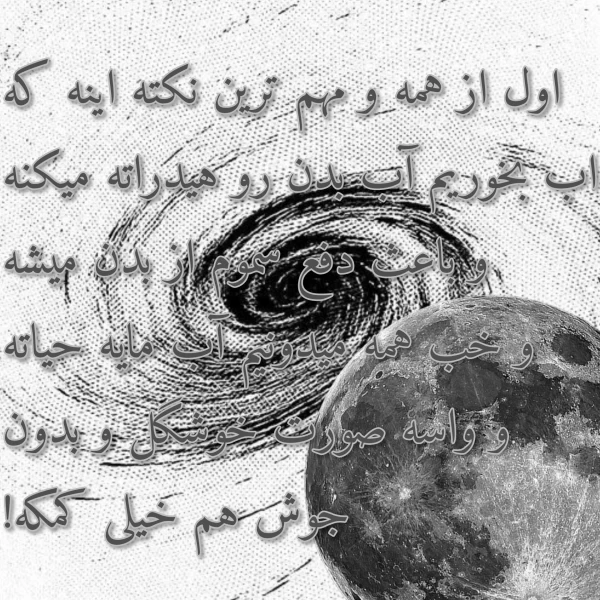 اول از همه و مهم ترین نکته اینه که
اب بخوریم آب بدن رو هیدراته میکنه
و باعث دفع سموم از بدن میشه
و خب همه میدونم آب مایه حیاته
و واسه صورت خوشگل و بدون
جوش هم خیلی کمکه!